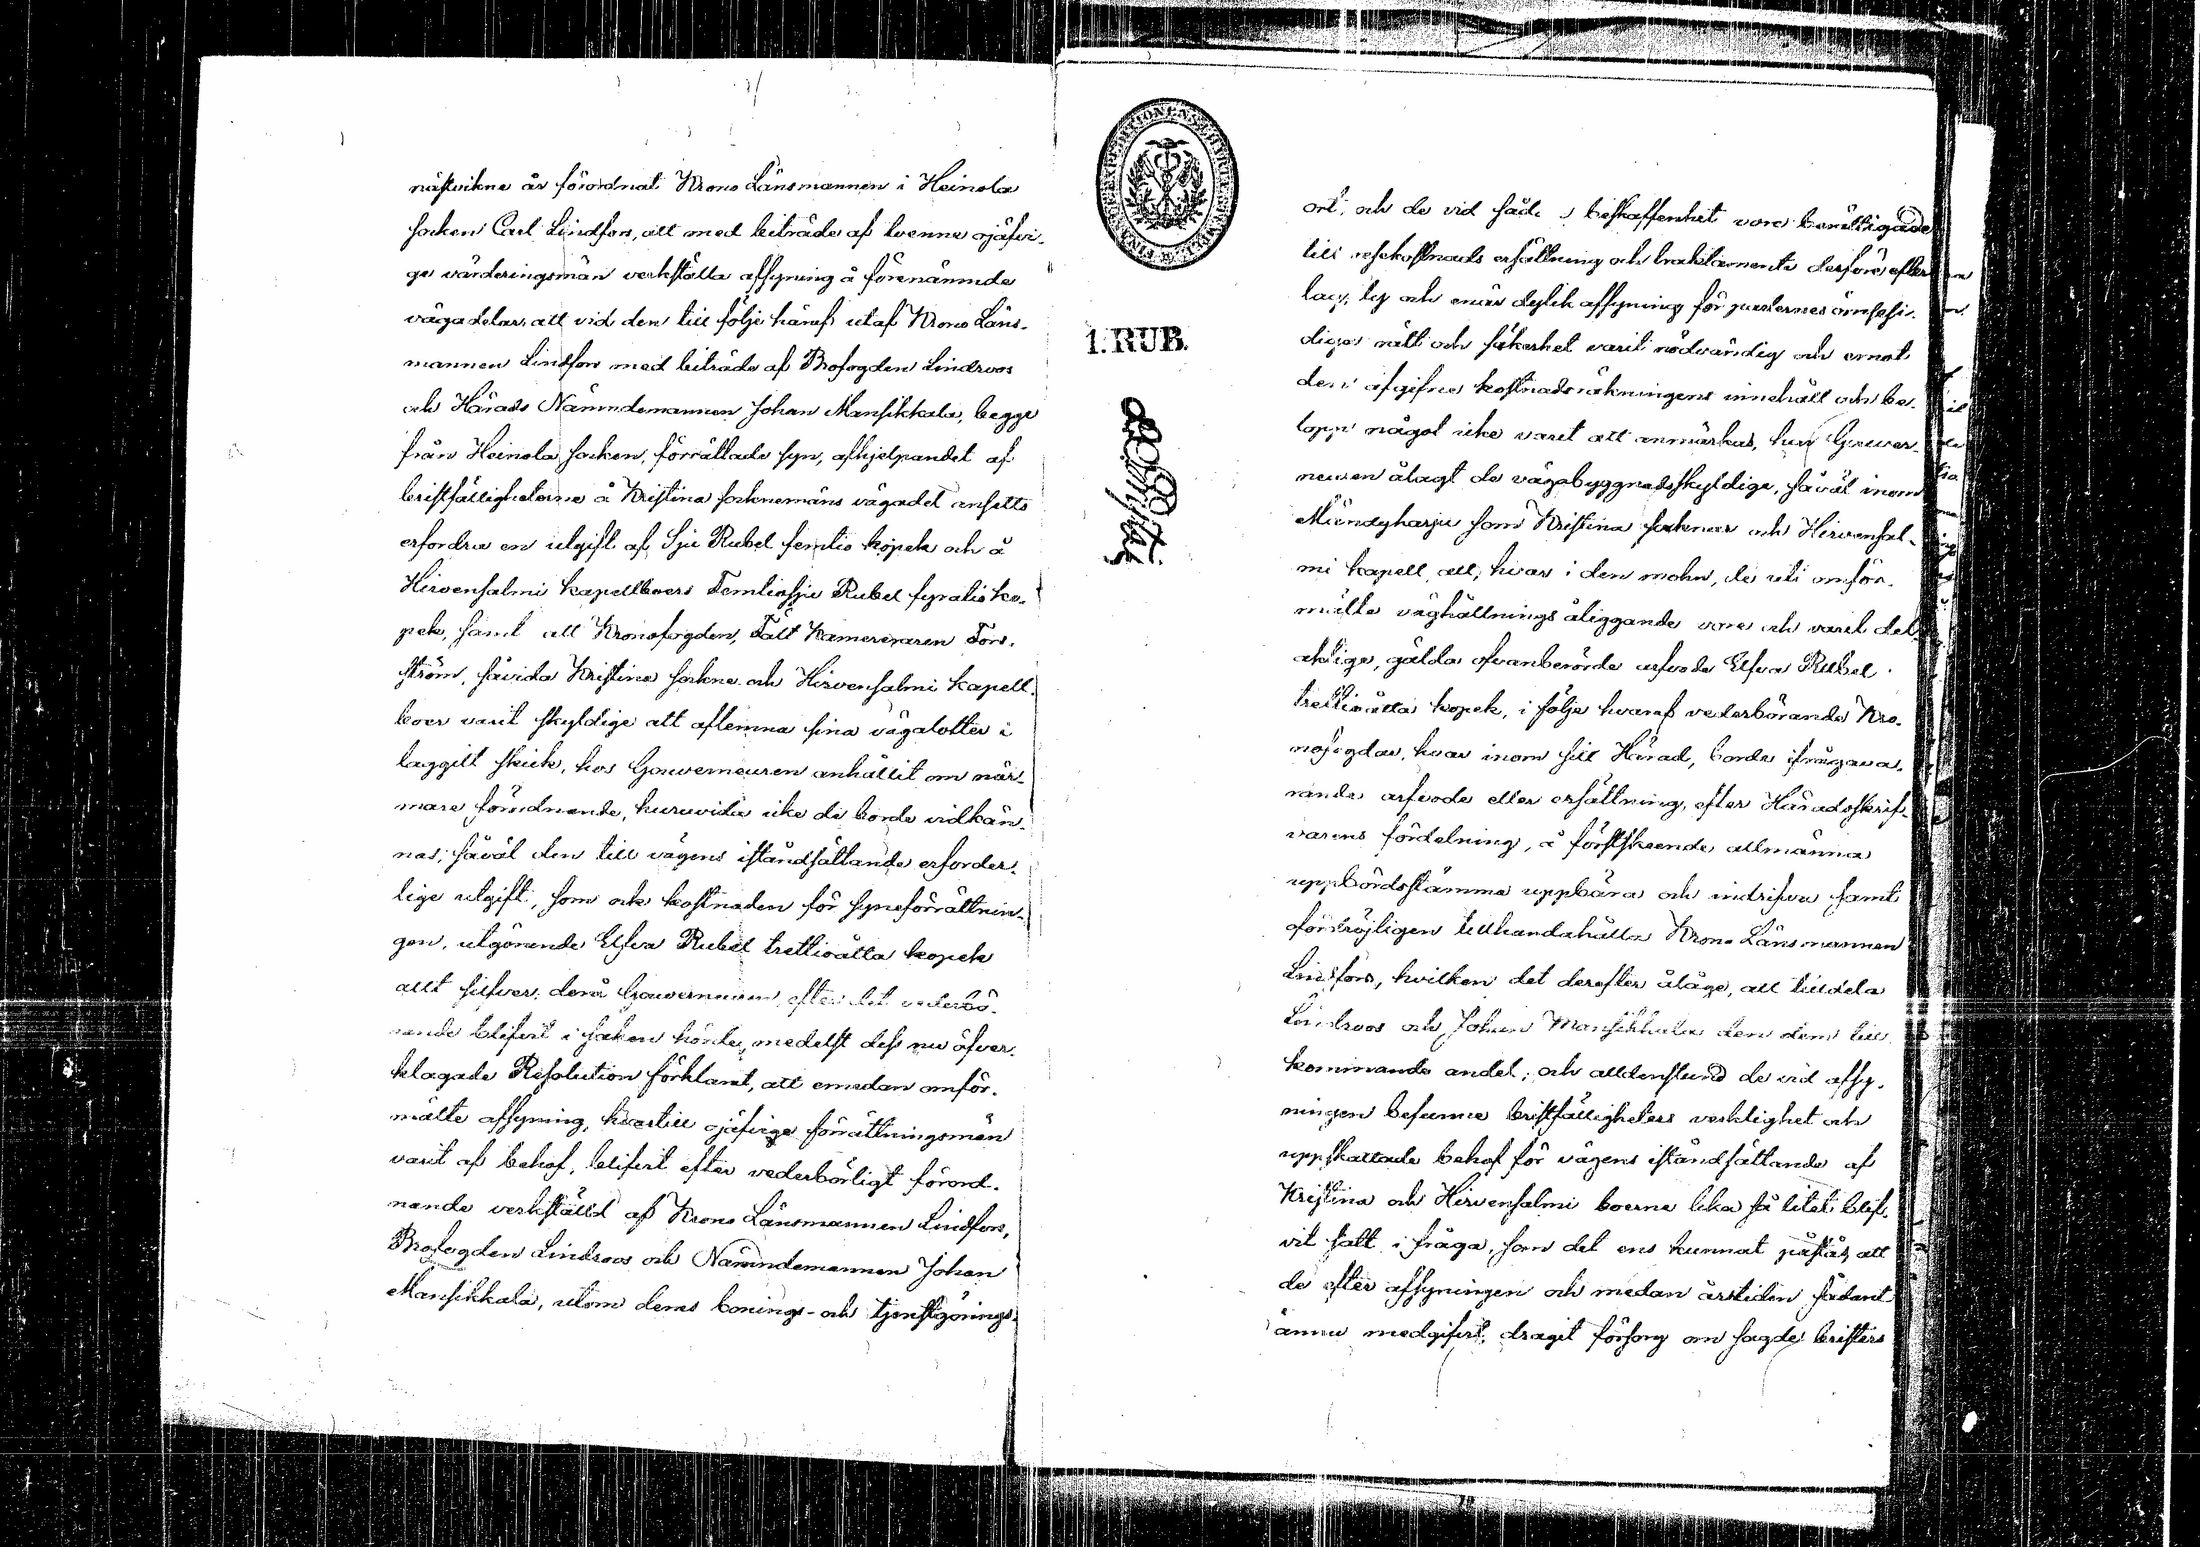 nästvikne år förordnat Krono Länsmannen i Heinola
socken Carl Lindfors, att med biträde af tvenne ojäfvi-
ge värderingsmän verkställa afsyning å förenämnde
vägadelar, att vid den till följe häraf utaf Krono Läns-
mannen Lindfors med biträde af Brofogden Lindroos
och Härads Nämndemannen Johan Mansikkala, begge
från Heinola socken, förrättade syn, afhjelpandet af
bristfälligheterne å Kristina socknemäns vägadel ansetts
erfordra en utgift af Sju Rubel femtio kopek och å
Hirvensalmi kapellboers Femtiosju Rubel fyratio ko-
pek, samt att Kronofogden, Fält Kamereraren Fors-
ström, såvida Kristina sockne och Hirvensalmi kapell-
boer varit skyldige att aflemna sina vägalotter i
laggilt skick, hos Gouverneuren anhållit om när-
mare förordnande, huruvida icke de borde vidkän-
nas, såväl den till vägens iståndsättande erforder-
lige utgift, som ock kostnaden för syneförrättnin-
gen, utgörende Elfva Rubel trettioåtta kopek
allt silfver, derå Gouverneuren, efter det vederbö-
rande blifvit i saken hörde, medelst dess nu öfver-
klagade Resolution förklarat, att emedan omför-
mälte afsyning, hvartill ojäfvige förrättningsmän
varit af behof, blifvit efter vederbörligt förord-
nande verkställd af Krono Länsmannen Lindfors,
Brofogden Lindroos och Nämndemannen Johan
Mansikkala, utom deras bonings- och tjenstgörings-
FINANCEEXPEDITIONENS
1. RUB.
ort, och de vid sådan beskaffenhet vore berättigade
till resekostnads ersättning och traktamente derföre efter
lag, ty och enär dylik afsyning för parternes ömsesi-
diga rätt och säkerhet varit nödvändig och emot
den afgifne kostnadsräkningens innehåll och be-
lopp något icke varit att anmärkas, har Gouver-
neuren ålagt de vägabyggnadsskyldige, såväl inom
Mäntyharju som Kristina socknar och Hirvensal-
mi kapell, att, hvar i den mohn, de uti omför-
mälte väghållnings åliggande vore och varit del-
aktige, gälda ofvanberörde arfvode Elfva Rubel
trettioåtta kopek, i följe hvaraf vederbörande Kro-
nofogdar, hvar inom sitt Härad, borde ifrågava-
rande arfvode eller ersättning, efter Häradsskrif-
varens fördelning, å förstskeende allmänna
uppbördsstämma uppbära och indrifva samt
ofördröjligen tillhandahålla Krono Länsmannen
Lindfors, hvilken det derefter åläge, att tilldela
Lindroos och Johan Mansikkala den dem till-
kommande andel; och alldenstund de vid afsy-
ningen befunne bristfälligheters verklighet och
uppskattade behof för vägens iståndsättande af
Kristina och Hirvensalmi boerne lika så litet blif-
vit satt i fråga, som det ens kunnat påstås, att
de efter afsyningen och medan årstiden sådant
ännu medgifvit, dragit försorg om sagde bristers